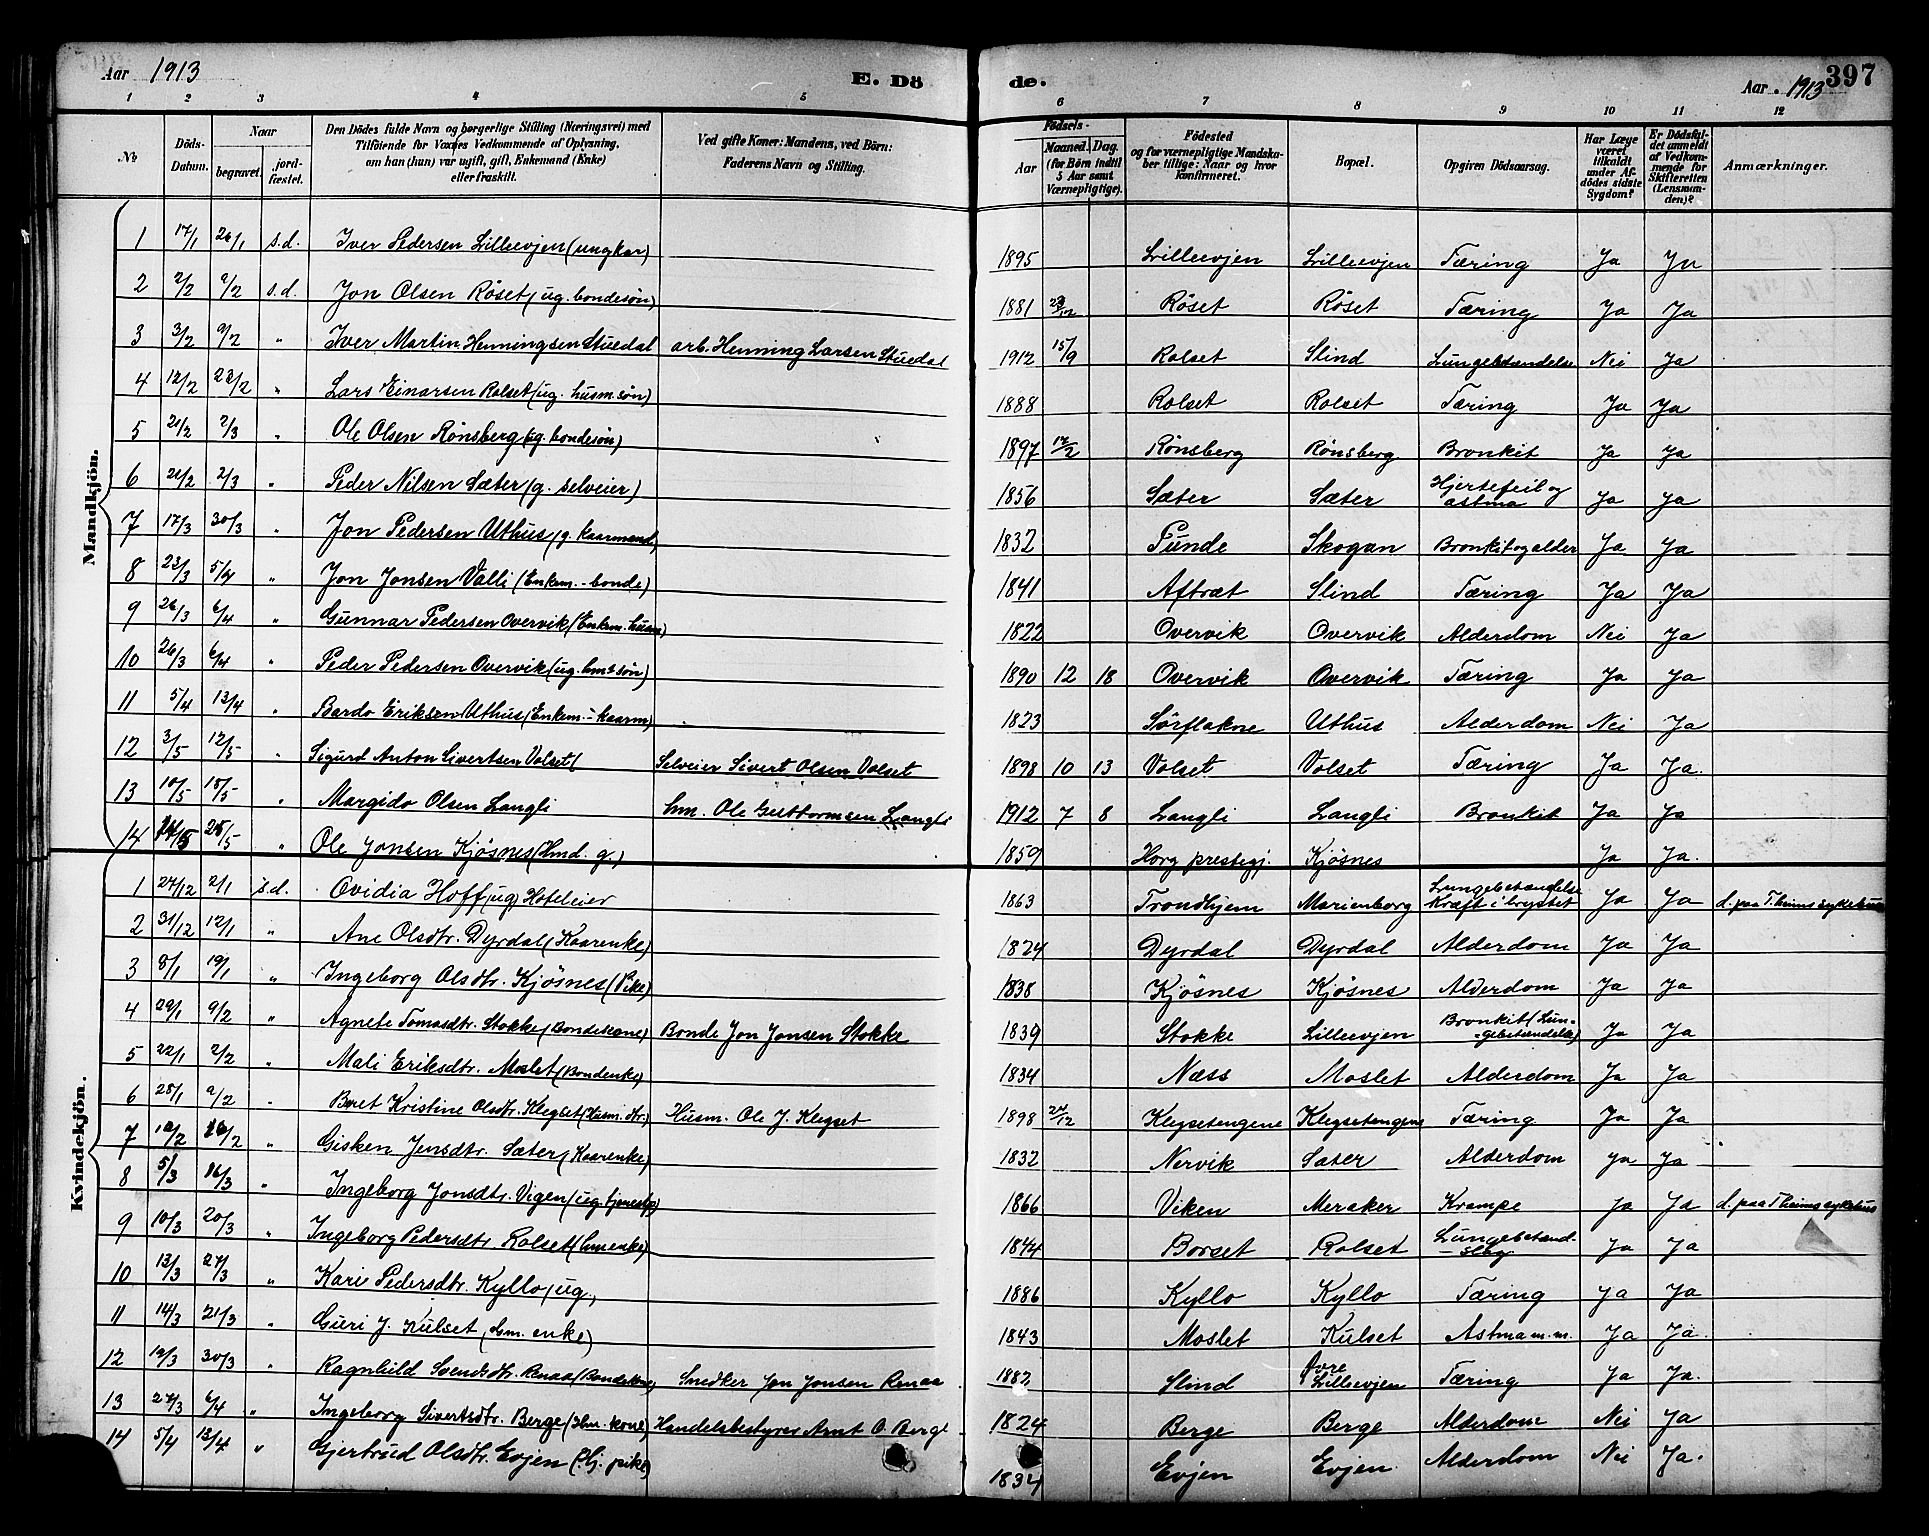 Aar 1913
E. Dö
de.
Aar 1913
397
1 2 3 4 5 6 7 8 9 10 11 12
No
Döds-Datum.
Naar
begravet.
jord-fæstet.
Den Dödes fulde Navn og borgerlige Stilling (Næringsvei) med
Tilföiende for Voxnes Vedkommende af Oplysning,
om han (hun) var ugift, gift, Enkemand (Enke)
eller fraskilt.
Ved gifte Koner: Mandens, ved Börn:
Faderens Navn og Stilling.
Födsels-
Aar
Maaned. Dag.
(for Börn indtil
5 Aar samt
Værnepligtige).
Födested
og for værnepligtige Mandska-
ber tillige: Naar og hvor
konfirmeret.
Bopæl.
Opgiven Dödsaarsag.
Har Læge
været
tilkaldt
under Af-
dödes sidste
Sygdom?
Er Dödsfal-
det anmeldt
af Vedkom-
mende for
Skifteretten
(Lensman-
den)?
Anmærkninger.
Mandkjön.
1 17/1 26/1 s.d. Iver Pedersen Lilleevjen (ungkar) 1895 Lilleevjen Lilleevjen Tæring Ja Ja
2 2/2 9/2 s.d. Jon Olsen Röset (ug. bondesön) 1881 23/12 Röset Röset Tæring Ja Ja
3 3/2 9/2 " Iver Martin Henningsen Stuedal arb. Henning Larsen Stuedal 1912 15/9 Rolset Slind Lungebetændelse Nei Ja
4 12/2 23/2 " Lars Einarsen Rolset (ug. husm.sön) 1888 Rolset Rolset Tæring Ja Ja
5 21/2 2/3 " Ole Olsen Rönsberg (ug. bondesön) 1897 17/2 Rönsberg Rönsberg Bronkit Ja Ja
6 21/2 2/3 " Peder Nilsen Sæter (g. selveier) 1856 Sæter Sæter Hjertefeil og astma Ja Ja
7 17/3 30/3 " Jon Pedersen Uthus (g. kaarmand) 1832 Tunde Skogan Bronkit og alder Ja Ja
8 23/3 5/4 " Jon Jonsen Valli (Enkem.-bonde) 1841 Aftræt Slind Tæring Ja Ja
9 26/3 6/4 " Gunnar Pedersen Overvik (Enkem. husm) 1822 Overvik Overvik Alderdom Nei Ja
10 26/3 6/4 " Peder Pedersen Overvik (ug. hm's sön) 1890 12 18 Overvik Overvik Tæring Ja Ja
11 5/4 13/4 " Bardo Eriksen Uthus (Enkem.-kaarm) 1823 Sörflakne Uthus Alderdom Nei Ja
12 3/5 12/5 " Sigurd Anton Sivertsen Volset( Selveier Sivert Olsen Volset 1898 10 13 Volset Volset Tæring Ja Ja.
13 10/5 15/5 " Margido Olsen Langli hm. Ole Guttormsen Langli 1912 7 8 Langli Langli Bronkit Ja Ja
14 25/5 " Ole Jonsen Kjösnes (Hmd. g.) 1859 Horg prestegj. Kjösnes Ja Ja.
Kvindekjön.
1 27/12 2/1 s.d. Ovidia Hoff (ug) Hoteleier 1863 Trondhjem Marienborg Lungebetændelse Kræft i brystet Ja Ja d. paa T.heims sykehus
2 31/12 12/1 " Ane Olsdtr. Dyrdal (Kaarenke) 1824 Dyrdal Dyrdal Alderdom Ja Ja
3 8/1 19/1 " Ingeborg Olsdtr. Kjösnes (Pike) 1838 Kjösnes Kjösnes Alderdom Ja Ja
4 29/1 9/2 " Agnete Tomasdtr. Stokke (Bondekone) Bonde Jon Jonsen Stokke 1839 Stokke Lilleevjen Bronkit (Lungebetændelse) Ja Ja
5 22/1 2/2 " Mali Eriksdtr. Moslet (Bondenke) 1834 Næss Moslet Alderdom Ja Ja
6 25/1 9/2 " Beret Kristine Olsdtr. Klegset (Husm. dtr.) Husm. Ole J. Klegset 1898 27/12 Klegsetengene Klegsetengene Tæring Ja Ja
7 10/2 16/2 " Gisken Jensdtr. Sæter (Kaarenke) 1832 Nervik Sæter Alderdom Ja Ja
8 5/3 16/3 " Ingeborg Jonsdtr. Vigen (ug. tjenestp) 1866 Viken Meraker Krampe Ja Ja d. paa T.heims sykehus
9 10/3 20/3 " Ingeborg Pedersdtr. Rolset (hmenke) 1844 Borset Rolset Lungebetænd- slag Ja Ja
10 13/3 27/3 " Kari Pedersdtr. Kyllo (ug. 1886 Kyllo Kyllo Tæring Ja Ja
11 14/3 21/3 " Guri J. Kulset (hm. enke) 1843 Moslet Kulset Astma m.m. Ja Ja.
12 19/3 30/3 " Ragnhild Svendsdtr. Renaa (Bondekone) Snedker Jon Jonsen Renaa 1882 Slind Övre Lilleevjen Tæring Ja Ja.
13 27/3 6/4 " Ingeborg Sivertsdtr. Berge (Hm. kone) Handelsbestyrer Arnt O. Berge 1824 Berge Berge Alderdom Nei Ja
14 5/4 13/4 " Gjertrud Olsdtr. Evjen (Tj. pike) 1834 Evjen Evjen Alderdom Nei Ja.